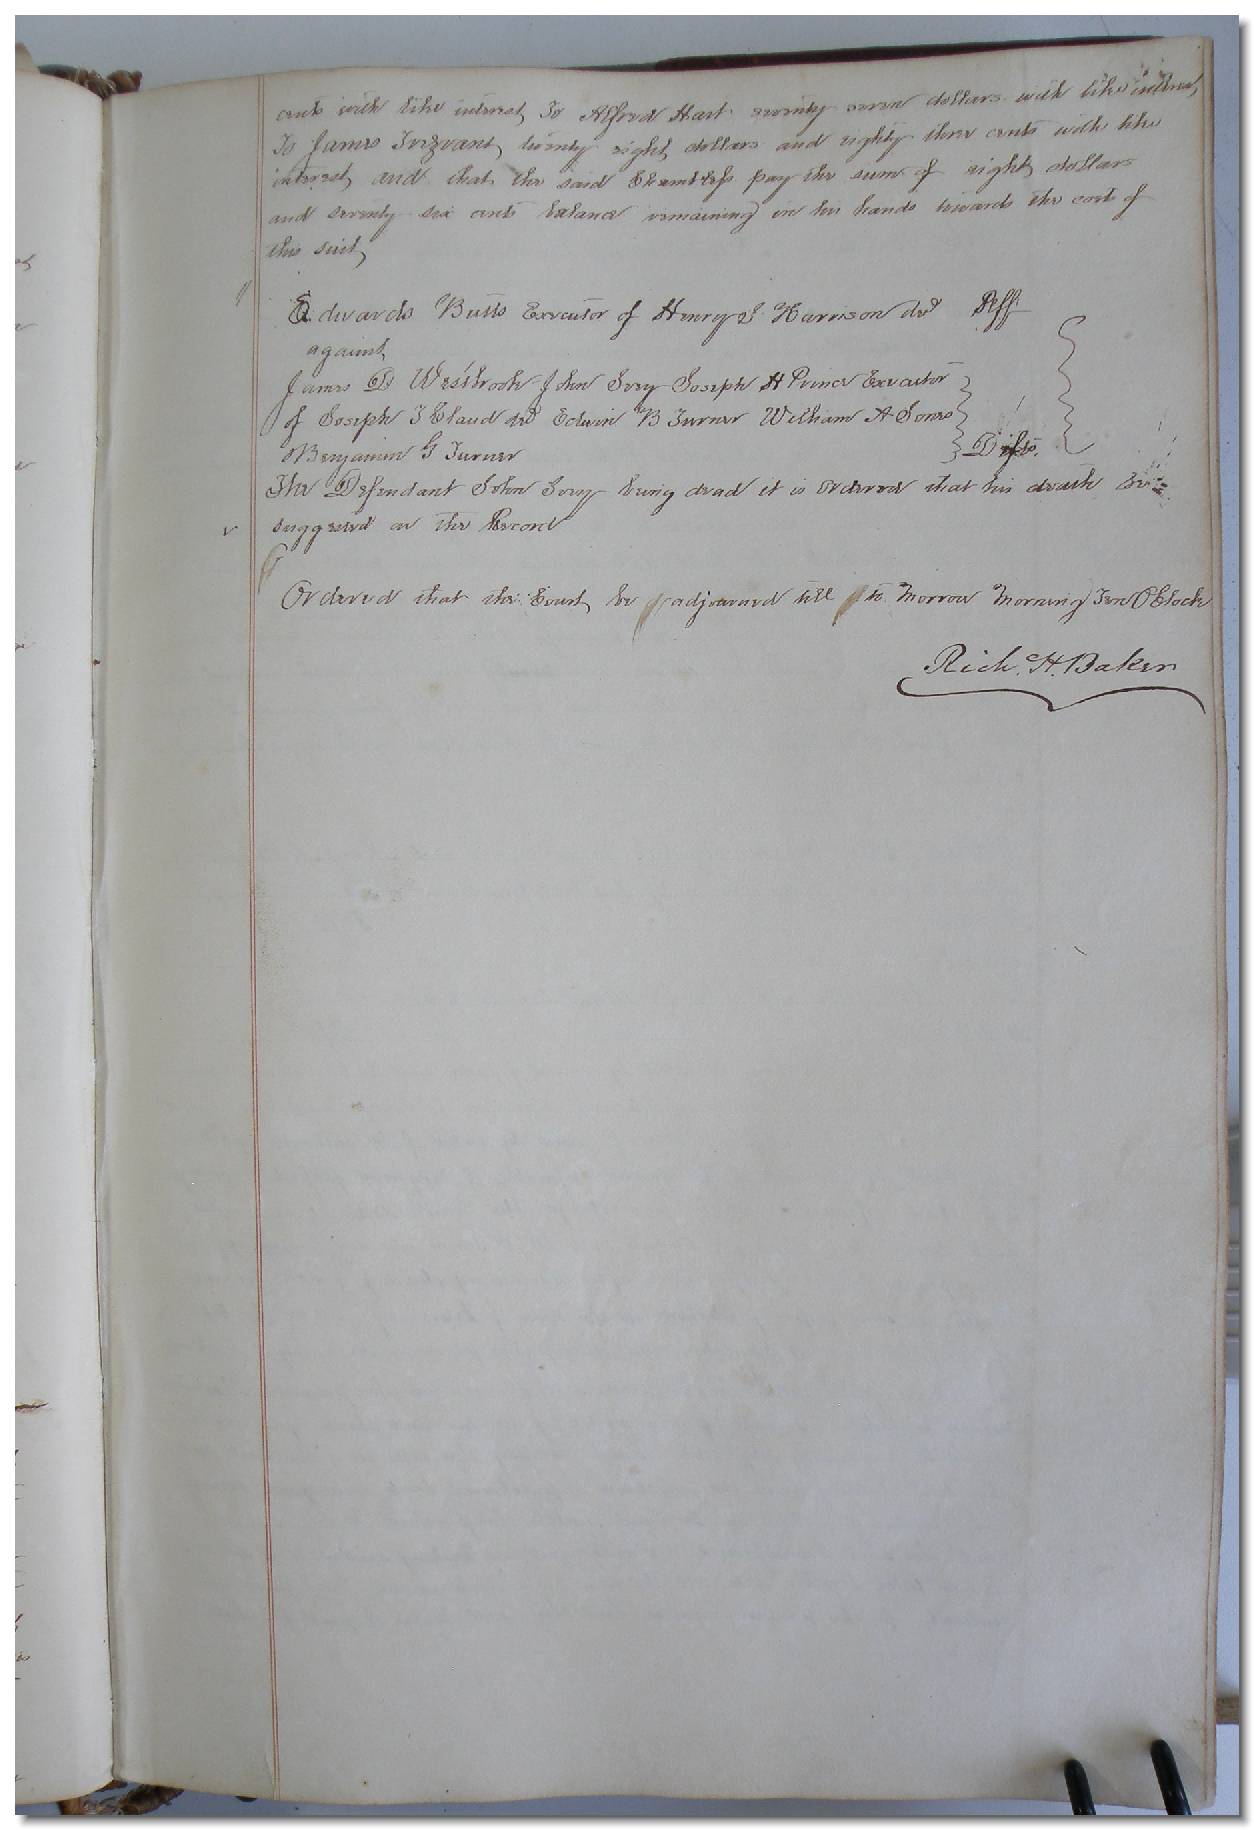 cents with like interest, To Alfred Hart seventy seven dollars with like interest,
To James Trezvant, twenty eight dollars and eighty three cents with like
interest, and that the said Chambless pay the sum of eight dollars
and seventy six cents balance remaining in his hands towards the cost of
this suit,
Edwards Butts Executor of Henry J Harrison decd Plff
against
James D Westbrook John Ivey Joseph H Prince Executor
of Joseph T Claud decd Edwin B Turner William A Jones
Benjamin G Turner Defts.
The Defendant John Ivey being dead it is ordered that his death be
suggested on the Record
Ordered that the Court be adjourned till to Morrow Morning Ten OClock
Rich. H. Baker